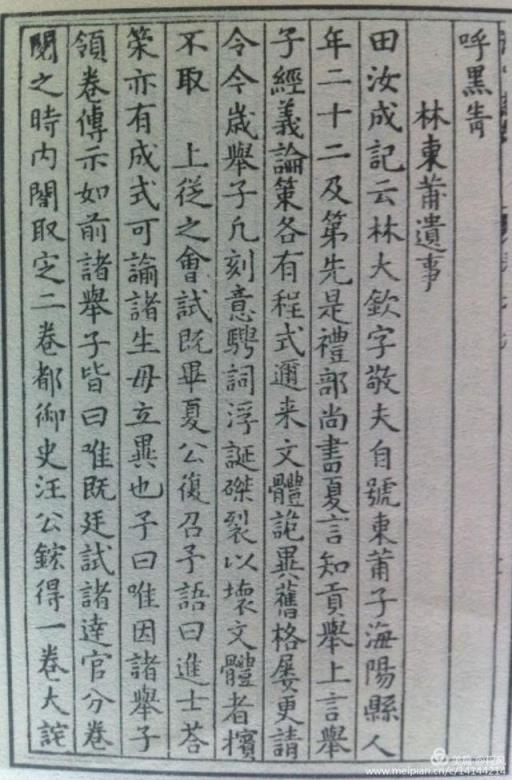 呼黑青
林東莆遺事
田汝成記云林大欽字敬夫自號東莆子海陽縣人
年二十二及第先是禮部尚書夏言知貢舉上言舉
子經義論策各有程式邇来文體詭異舊格屡更請
令今歲舉子凢刻意騁詞浮誕磔裂以壞文體者擯
不取　上從之會試既畢夏公復召予語曰進士荅
策亦有成式可論諸生毋立異也予曰唯因諸舉子
領卷傳示如前諸舉子皆曰唯既廷試諸達官分卷
閱之時内閣取定二卷都御史汪公鋐得一卷大詫
www.meipian.cn/c/14144214